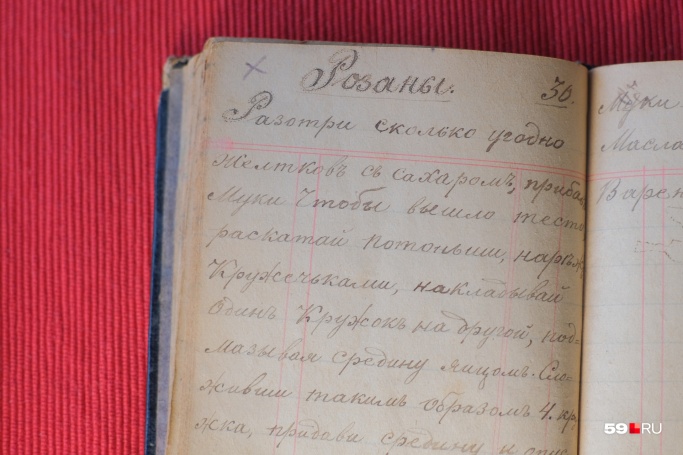 Розаны. 30.
Разотри сколько угодно
желтковъ съ сахаромъ, прибав
Муки чтобы вышло тесто,
раскатай потоньши, нарѣж
Кружечьками, накладывай
Одинъ Кружокъ на другой, под-
мазывая средину яицомъ. Сло-
живши такимъ образомъ 4. кру
жка, придави средину и опус
Муки
Масла
Варен
59.RU